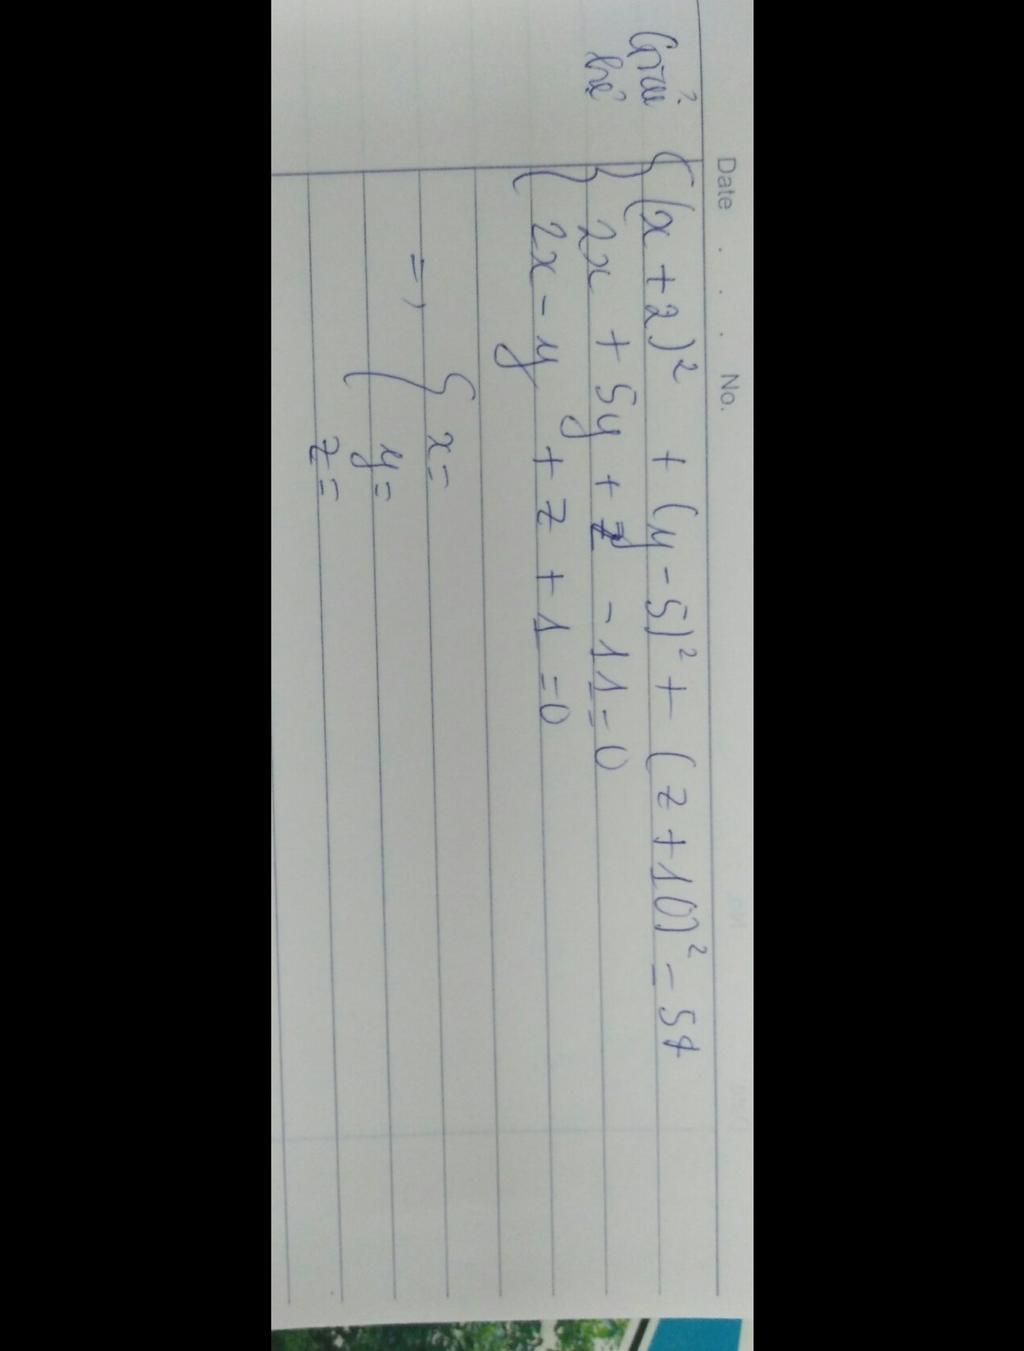 Date . . . No.
Giải hệ
(x + 2)² + (y - 5)² + (z + 10)² = 54
2x + 5y + z - 11 = 0
2x - y + z + 1 = 0
=> { x =
y =
z =